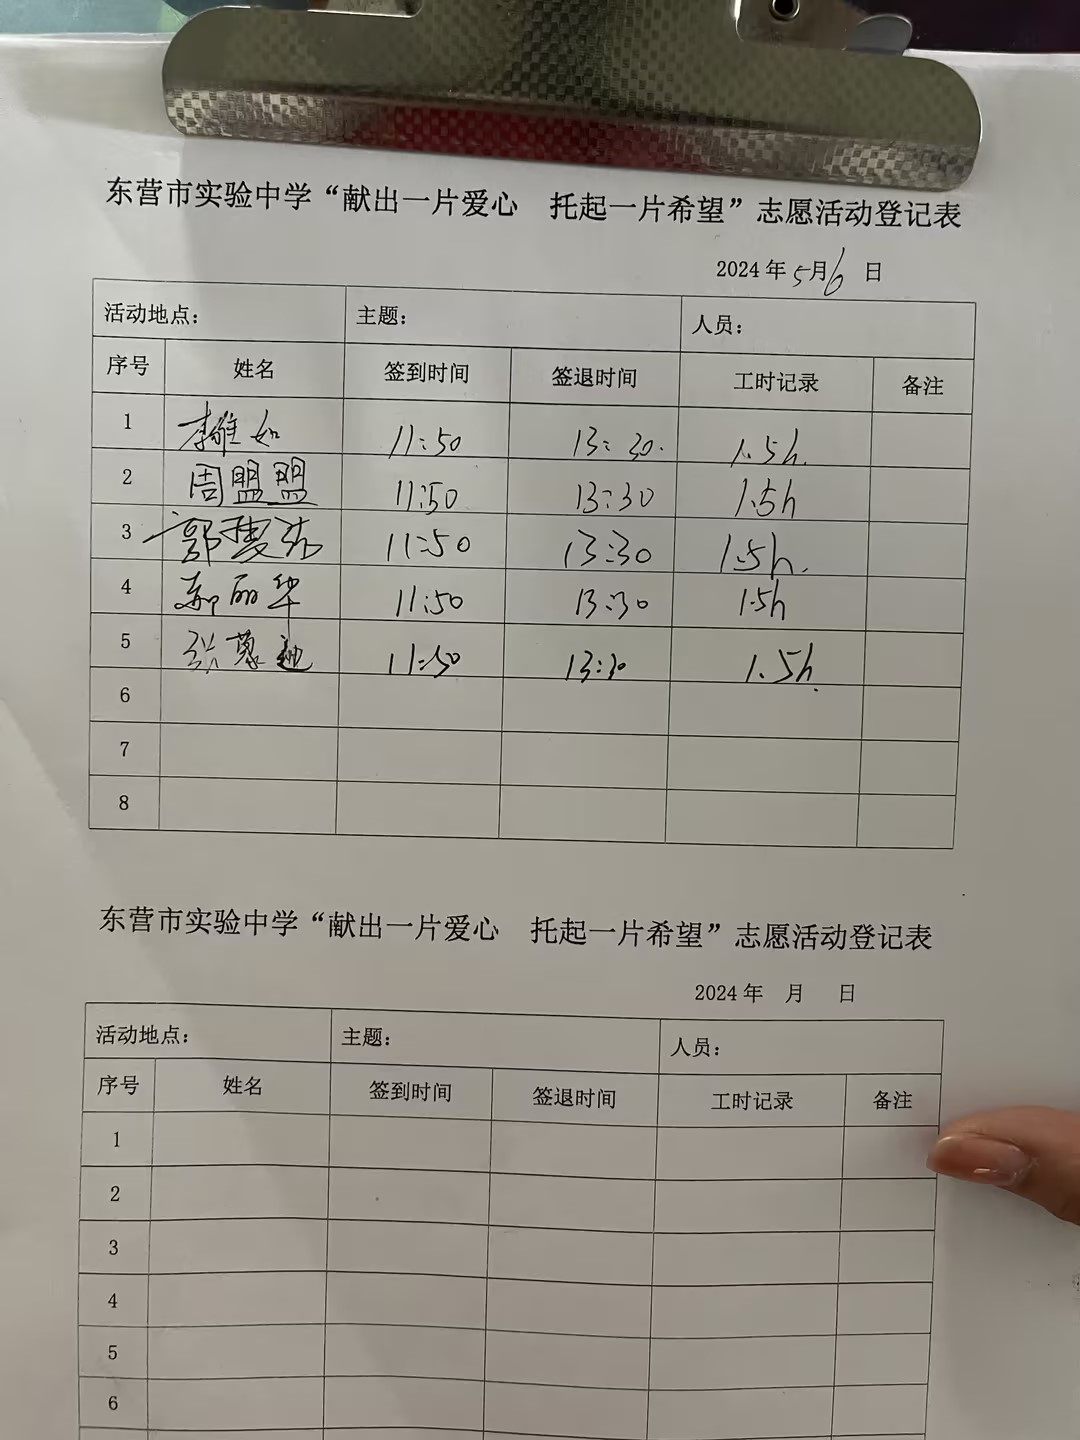 东营市实验中学“献出一片爱心 托起一片希望”志愿活动登记表
2024年5月6日
活动地点: 主题: 人员:
序号 姓名 签到时间 签退时间 工时记录 备注
1 李雅如 11:50 13:30. 1.5h.
2 周盟盟 11:50 13:30 1.5h
3 郭 11:50 13:30 1.5h.
4 郝丽华 11:50 13:30 1.5h
5 张慕迪 11:50 13:30 1.5h.
6
7
8
东营市实验中学“献出一片爱心 托起一片希望”志愿活动登记表
2024年 月 日
活动地点: 主题: 人员:
序号 姓名 签到时间 签退时间 工时记录 备注
1
2
3
4
5
6